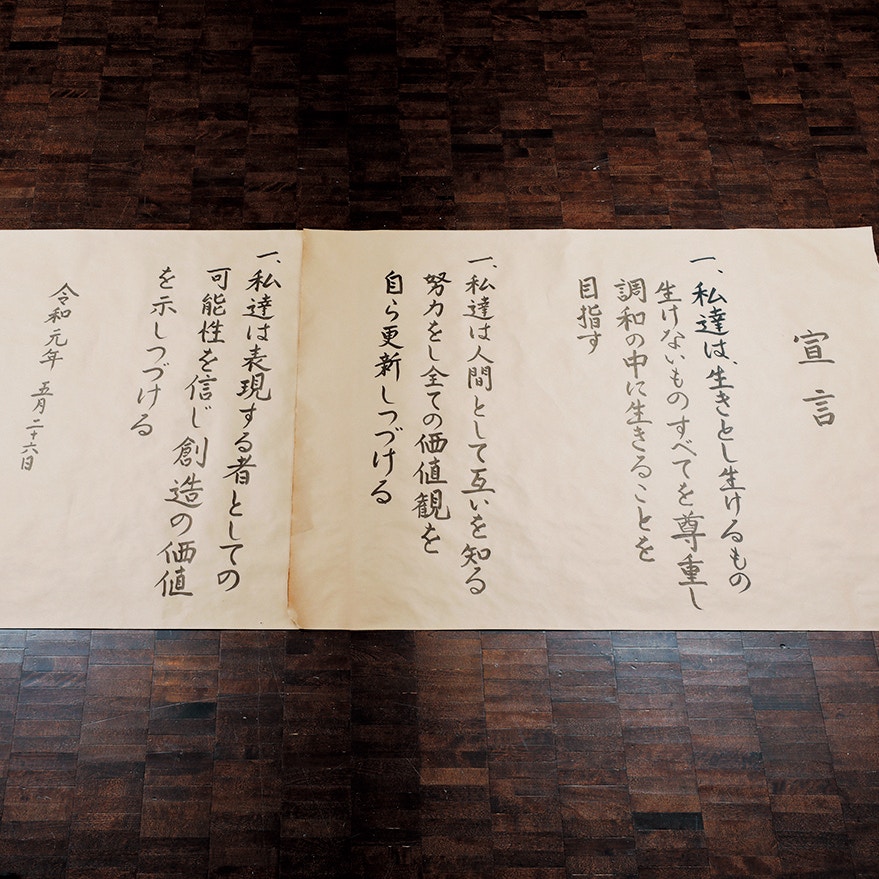 宣言
一、私達は、生きとし生けるもの
生けないものすべてを尊重し
調和の中に生きることを
目指す
一、私達は人間として互いを知る
努力をし全ての価値観を
自ら更新しつづける
一、私達は表現する者としての
可能性を信じ創造の価値
を示しつづける
令和元年 五月二十六日